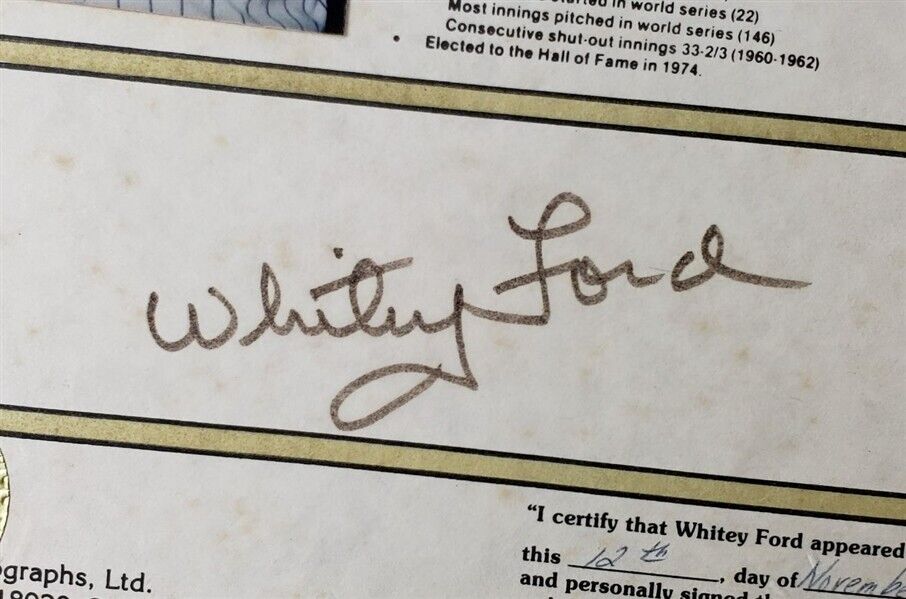 in world series (22)
Most innings pitched in world series (146)
Consecutive shut-out innings 33-2/3 (1960-1962)
• Elected to the Hall of Fame in 1974.
Whitey Ford
"I certify that Whitey Ford appeared
this 12th, day of Novembe
and personally signed th
ographs, Ltd.